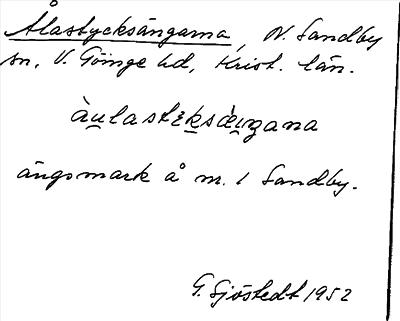 Ålastycksängarna, N. Sandby
sn, V. Göinge hd, Krist. län.
àu̲lastɛk̲sæ̀ɪ̲ŋana
ängsmark å m. 1 Sandby.
G. Sjöstedt 1952